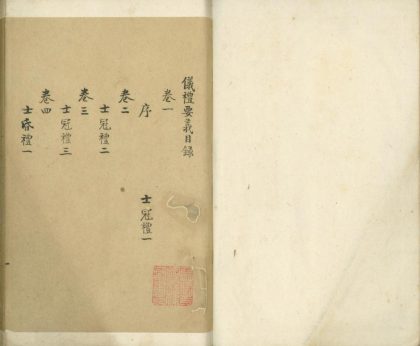 儀禮要義目録
卷一
序　士冠禮一
卷二
士冠禮二
卷三
士冠禮三
卷四
士昏禮一